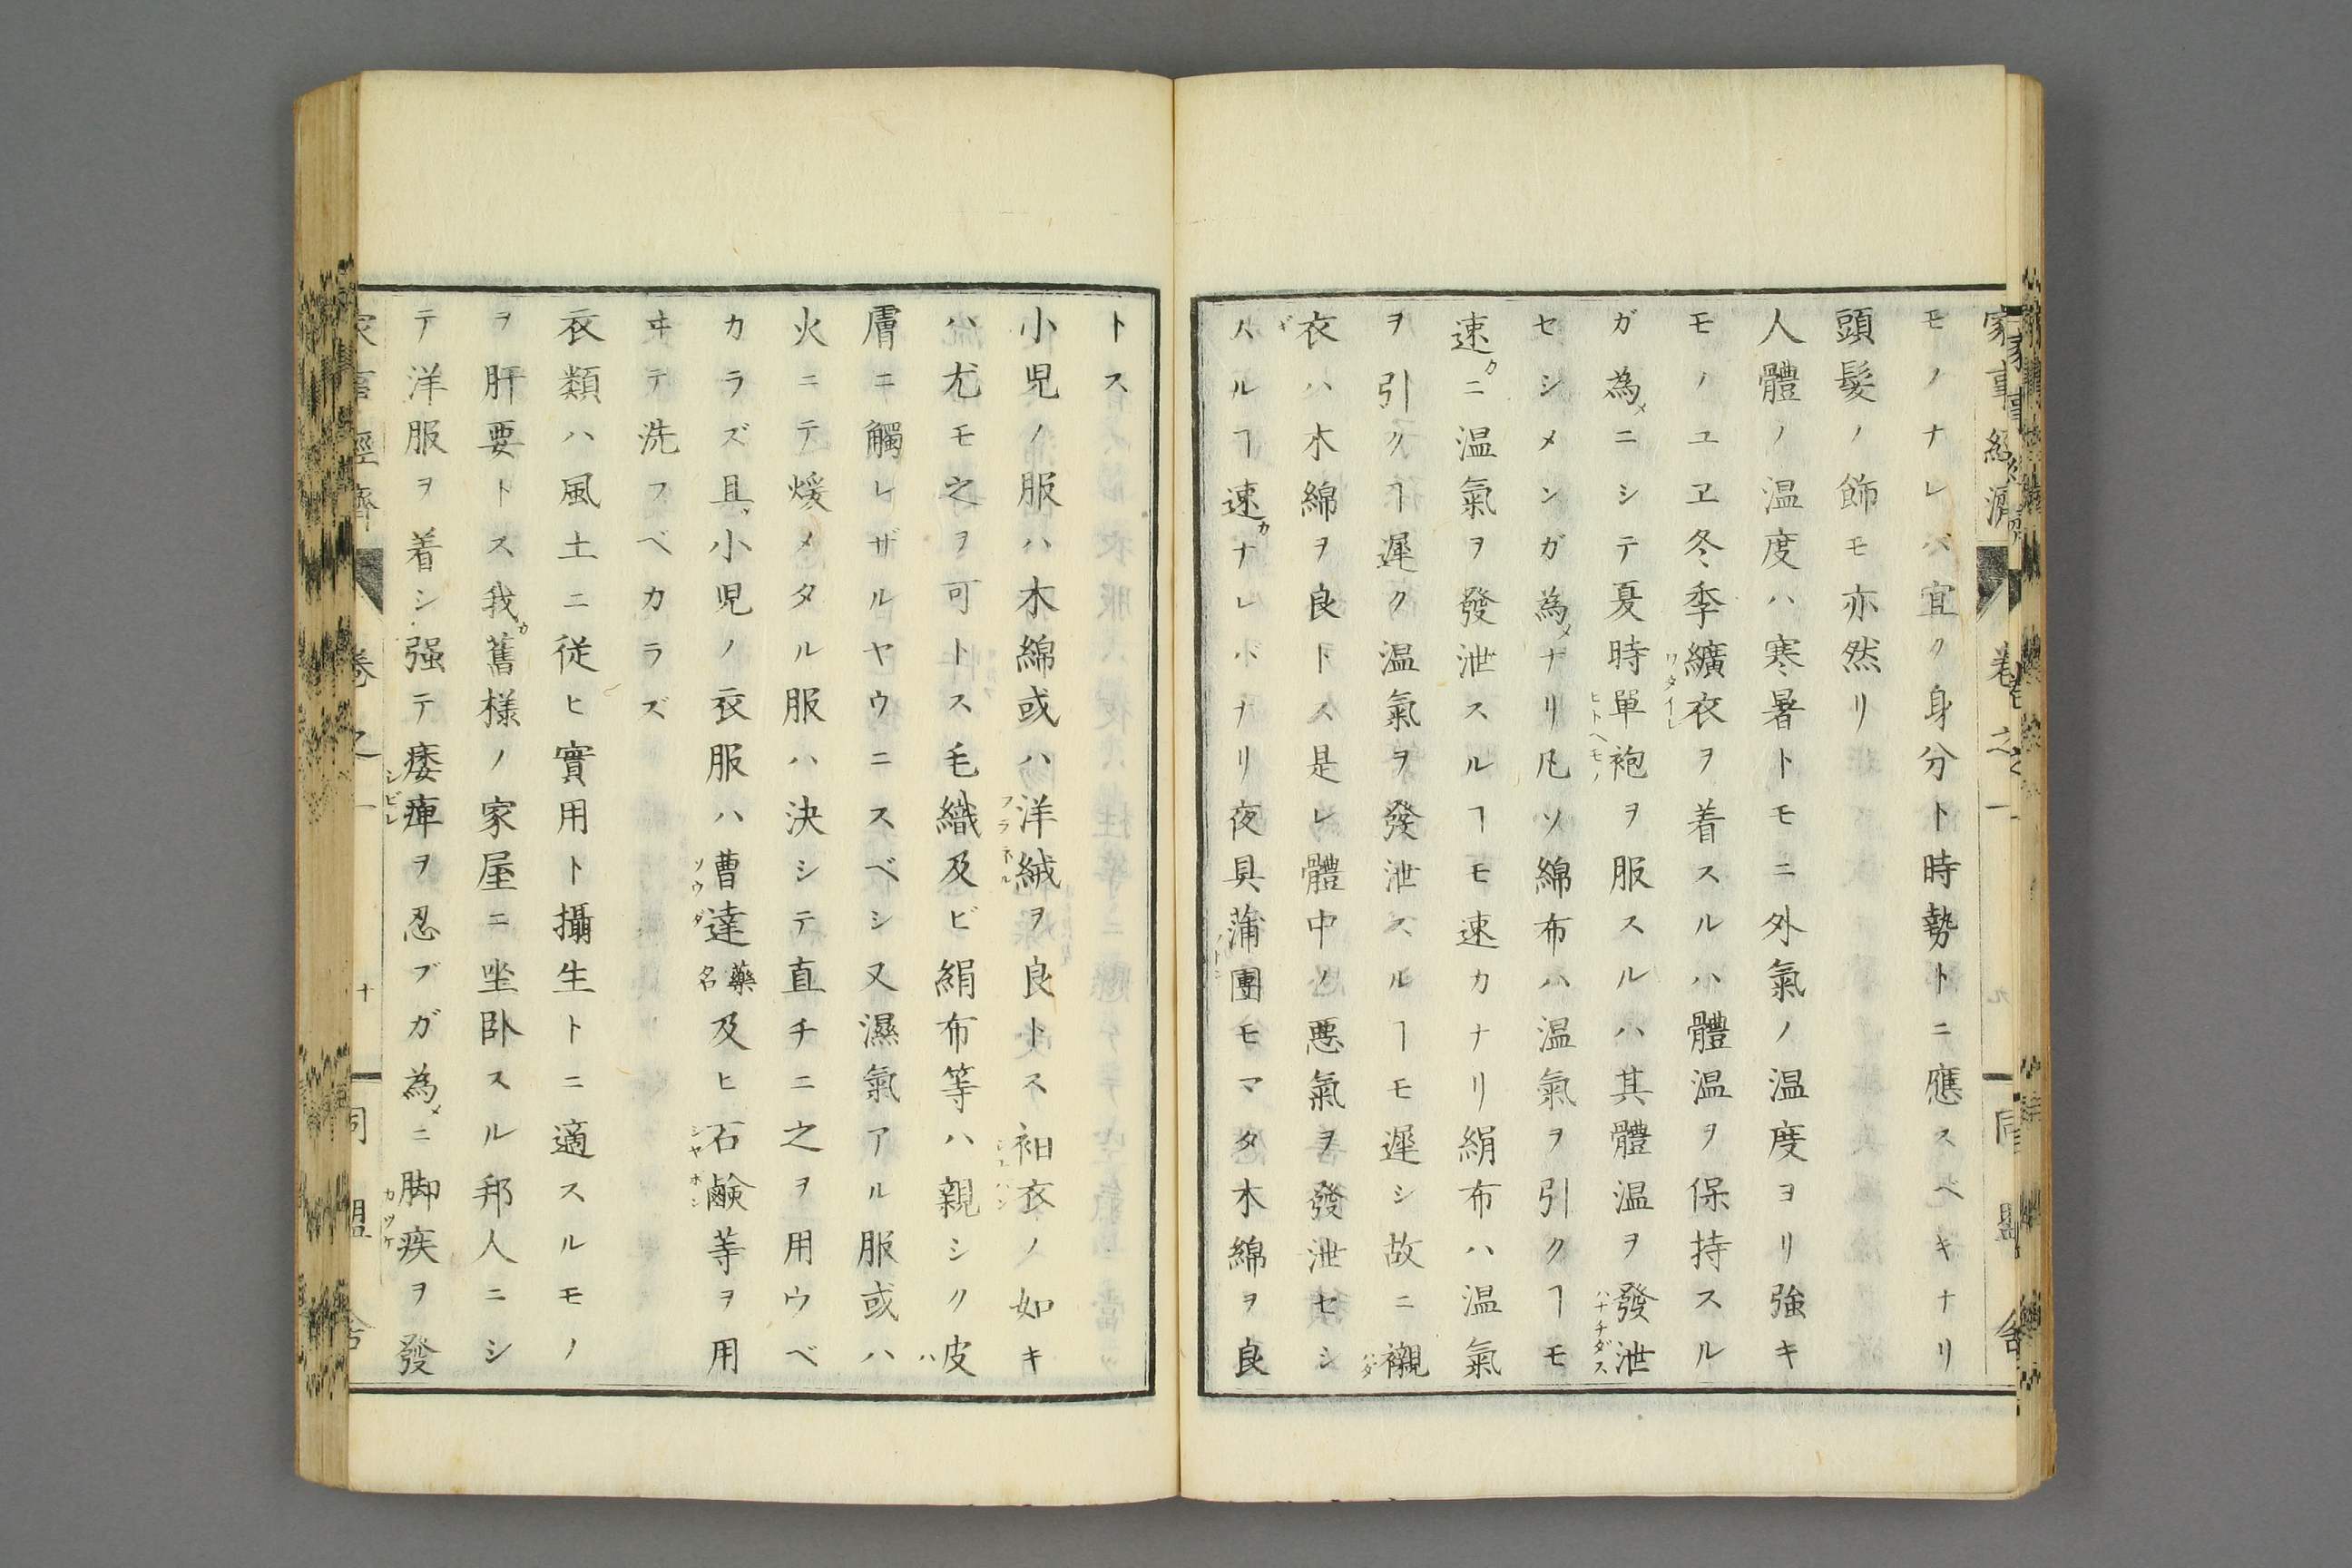 モノナレバ宜ク身分ト時勢トニ應スベキナリ
頭髮ノ飾モ亦然リ
人體ノ温度ハ寒暑トモニ外氣ノ温度ヨリ強キ
モノユヱ冬季纊衣ヲ着スルハ體温ヲ保持スル
ワタイレ
ガ為メニシテ夏時單袍ヲ服スルハ其體温ヲ發泄
ヒトヘモノ
ハナチダス
セシメンガ為メナリ凡ソ綿布ハ温氣ヲ引クヿモ
速カニ温氣ヲ發泄スルヿモ速カナリ絹布ハ温氣
ヲ引クヿ遲ク温氣ヲ發泄スルヿモ遲シ故ニ襯
ハダ
衣ハ木綿ヲ良トス是レ體中ノ惡氣ヲ發泄セシ
ギ
ムルヿ速カナレバナリ夜具蒲團モマタ木綿ヲ良
フトン
トス
小児ノ服ハ木綿或ハ洋絨ヲ良トス袙衣ノ如キ
フラネル
ジユバン
ハ尤モ之ヲ可トス毛織及ビ絹布等ハ親シク皮
ハ
膚ニ觸レザルヤウニスベシ又濕氣アル服或ハ
火ニテ煖メタル服ハ決シテ直チニ之ヲ用ウベ
カラズ且ツ小児ノ衣服ハ曹達藥名及ヒ石鹸等ヲ用
ソウダ
シヤボン
ヰテ洗フベカラズ
衣類ハ風土ニ従ヒ實用ト攝生トニ適スルモノ
ヲ肝要トス我カ舊様ノ家屋ニ坐臥スル邦人ニシ
テ洋服ヲ着シ强テ痿痺ヲ忍ブガ為メニ脚疾ヲ發
シビレ
カツケ